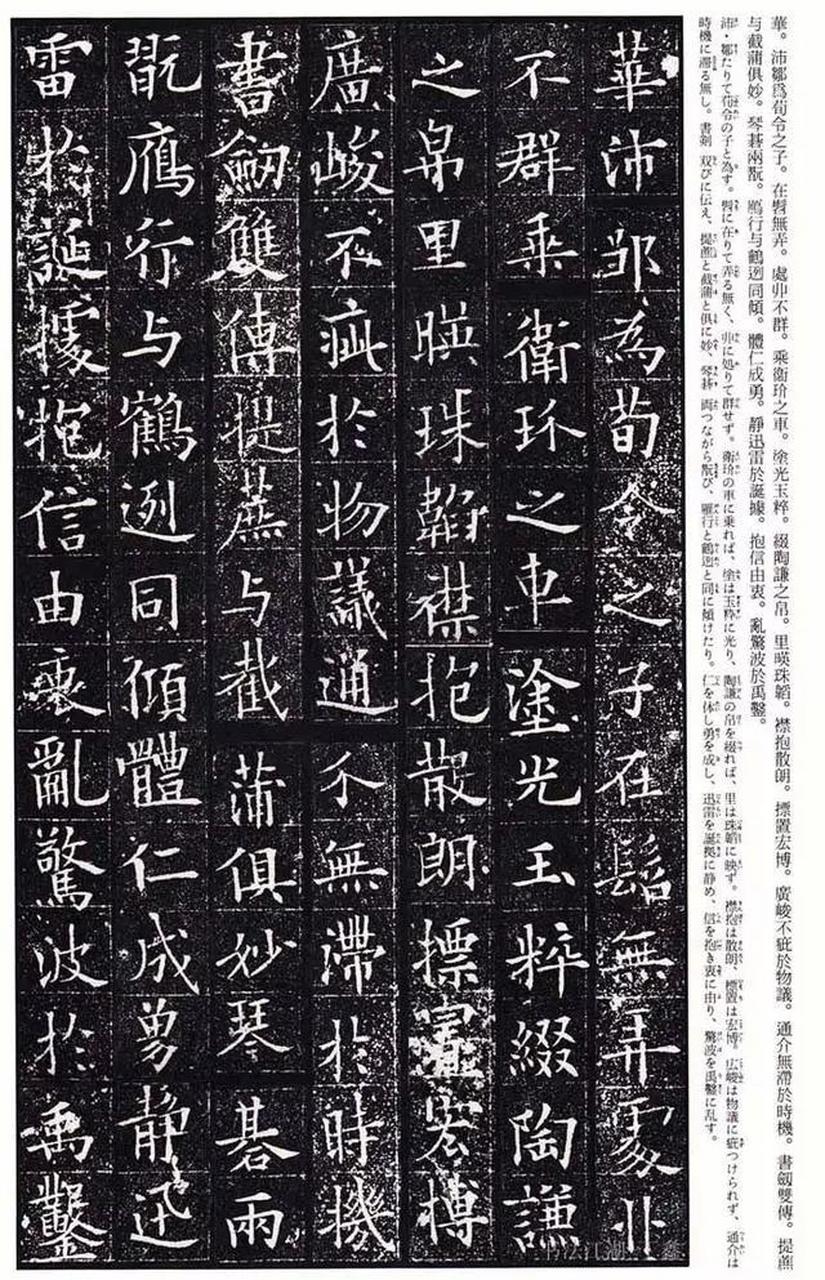 華。沛鄒爲荀令之子。在髫無弄。處丱不群。乘衞玠之車。塗光玉粹。綴陶謙之帛。里暎珠韜。襟抱散朗。摽置宏博。廣峻不疵於物議。通介無滯於時機。書劒雙傳。提蕉
与截蒲俱妙。琴碁兩翫。鴈行与鶴迾同傾。體仁成勇。靜迅雷於誕據。抱信由衷。亂驚波於禹鑿。
沛・鄒たりて荀令の子と為す。髫に在りて弄る無く、丱に処りて群せず。衛玠の車に乗れば、塗は玉粋に光り、陶謙の帛を綴れば、里は珠韜に映ず。襟抱は散朗、摽置は宏博。広峻は物議に疵つけられず、通介は
時機に滞る無し。書剣 双びに伝え、提蕉と截蒲と倶に妙、琴碁 両つながら翫び、雁行と鶴迾と同に傾けたり。仁を体し勇を成し、迅雷を誕拠に静め、信を抱き衷に由り、驚波を禹鑿に乱す。
華沛鄒為荀令之子在髫無弄處丱
不群乘衛玠之車塗光玉粹綴陶謙
之帛里暎珠韜襟抱散朗摽置宏博
廣峻不疵於物議通介無滯於時機
書劒雙傳提蕉与截蒲俱妙琴碁兩
翫鴈行与鶴迾同傾體仁成勇静迅
雷於誕據抱信由衷亂驚波於禹鑿